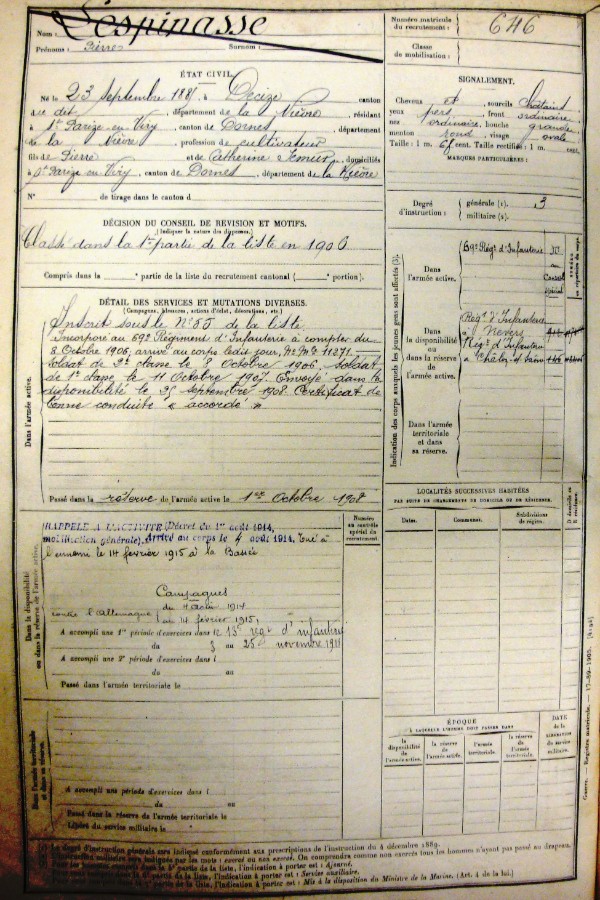 Nom : Lespinasse
Prénoms : Pierre Surnom :
Numéro matricule du recrutement : 646
Classe de mobilisation :
ÉTAT CIVIL.
Né le 23 Septembre 1885, à Decize, canton
dudit, département de la Nièvre, résidant
à St Parize-en-Viry, canton de Dornes, département
de la Nièvre, profession de cultivateur
fils de Pierre et de Catherine, domiciliés
à St Parize en Viry, canton de Dornes, département de la Nièvre
N° de tirage dans le canton d
SIGNALEMENT.
Cheveux et sourcils châtains
yeux front ordinaire
nez ordinaire, bouche grande
menton rond, visage ovale
Taille : 1 m. cent. Taille rectifiée : 1 m. cent.
MARQUES PARTICULIÈRES :
Degré d'instruction : générale (1). 3
militaire (2).
DÉCISION DU CONSEIL DE REVISION ET MOTIFS.
(Indiquer la nature des dispenses.)
Classé dans la 1re partie de la liste en 1906
Compris dans la partie de la liste du recrutement cantonal ( portion).
DÉTAIL DES SERVICES ET MUTATIONS DIVERSES.
(Campagnes, blessures, actions d'éclat, décorations, etc.)
Dans l'armée active.
Inscrit sous le N° 85 de la liste
Incorporé au 69e Régiment d'Infanterie à compter du
8 Octobre 1906, arrivé au corps ledit jour, No Mle 11271.
Soldat de 2e classe le 8 Octobre 1906, soldat
de 1re classe le 11 Octobre 1907. Envoyé dans la
disponibilité le septembre 1908. Certificat de
bonne conduite « accordé »
Passé dans la réserve de l'armée active le 1er Octobre 1908
Indication des corps auxquels les jeunes gens sont affectés (3).
Dans l'armée active.
69e Régt d'Infanterie
Dans la disponibilité ou dans la réserve de l'armée active.
Régt d'Infanterie
à Nevers
Régt d'Infanterie
à Châlon s/ Saône
Dans l'armée territoriale et dans sa réserve.
Dans la disponibilité ou dans la réserve de l'armée active.
Numéro au contrôle spécial du recrutement.
RAPPELÉ A L'ACTIVITÉ (Décret du 1er août 1914,
mobilisation générale). Arrivé au corps le 4 août 1914. Tué à
l'ennemi le 14 février 1915 à la Bassée
Campagnes
contre l'Allemagne du 4 août 1914
au 14 février 1915.
A accompli une 1re période d'exercices dans le 13e régt d'infanterie
du 3 au 25 novembre 1911
A accompli une 2e période d'exercices dans l
du au
Passé dans l'armée territoriale le
Dans l'armée territoriale et dans sa réserve.
A accompli une période d'exercices dans l
du au
Passé dans la réserve de l'armée territoriale le
Libéré du service militaire le
LOCALITÉS SUCCESSIVES HABITÉES
PAR SUITE DE CHANGEMENTS DE DOMICILE OU DE RÉSIDENCE.
Dates. Communes. Subdivisions de région. D domicile ou R résidence.
ÉPOQUE
À LAQUELLE L'HOMME DOIT PASSER DANT
la disponibilité de l'armée active. la réserve de l'armée active. l'armée territoriale. la réserve de l'armée territoriale.
DATE de la LIBÉRATION du service militaire.
Guerre. — Registre matricule. — 17-89-1905.
(1) Le degré d'instruction générale sera indiqué conformément aux prescriptions de l'instruction du 4 décembre 1889.
(2) L'instruction militaire sera indiquée par les mots : exercé ou non exercé. On comprendra comme non exercés tous les hommes n'ayant pas passé au drapeau.